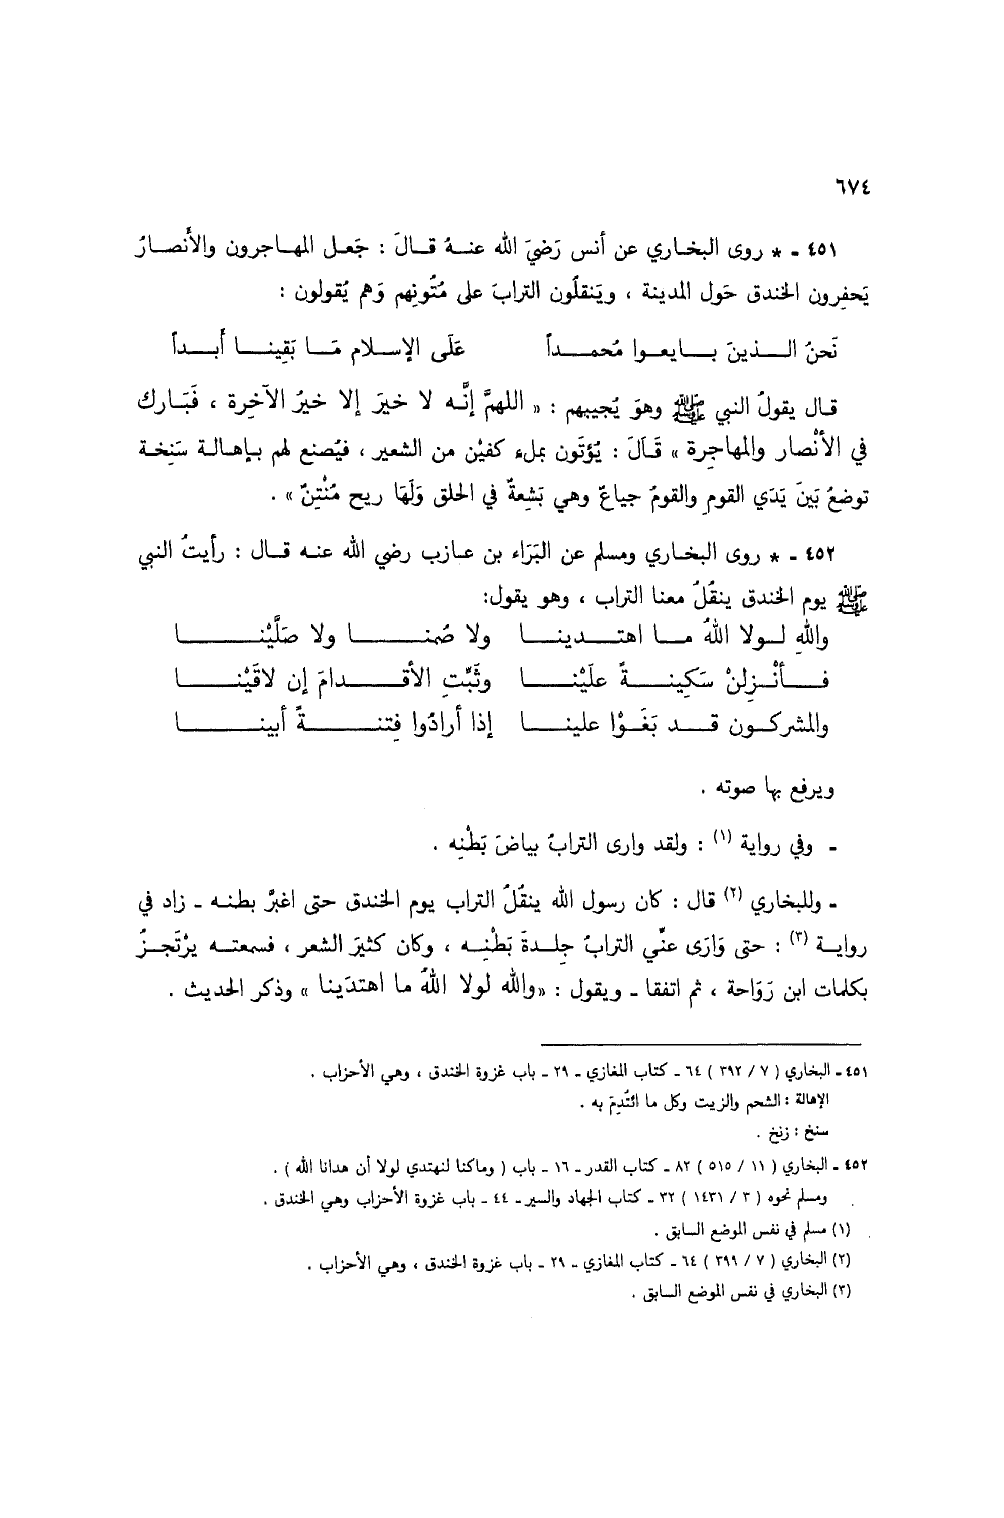 ٦٧٤
٤٥١ - * روى البخاري عن أنس رَضيَ الله عنهُ قالَ : جَعل المهاجرون والأَنصارُ
يَحفِرون الخندق حَول المدينة ، ويَنقلُون الترابَ على مُتُونِهم وَهم يُقولون :
نَحنُ الذينَ بايعوا مُحمداً عَلَى الإسلام مَا بَقِينا أَبداً
قال يقولُ النبي ﷺ وهوَ يُجيبهم : « اللهمَّ إنَّه لا خيرَ إلا خيرُ الآخِرة ، فَبَارك
في الأنْصار والمهاجِرة » قَالَ : يُؤتَون بملء كفيْن من الشعير ، فيُصنع لهم بإهالة سَنِخة
توضعُ بَينَ يَدَي القوم والقومُ جياعٌ وهي بَشِعةٌ في الحلق وَلَهَا ريح مُنْتِنٌ » .
٤٥٢ - * روى البخاري ومسلم عن البَرَاء بن عازب رضي الله عنه قال : رأيتُ النبي
ﷺ يوم الخندق ينقُلُ معنا التراب ، وهو يقول:
واللهِ لولا اللهُ ما اهتدينا ولا صُمنا ولا صَلَّيْنا
فأنْزِلنْ سَكِينةً علَيْنا وثَبِّتِ الأقدامَ إن لاقَيْنا
والمشركون قد بَغَوْا علينا إذا أرادُوا فِتنةً أبينا
ويرفع بها صوته .
- وفي رواية (١) : ولقد وارى الترابُ بياضَ بَطْنِه .
- وللبخاري (٢) قال : كان رسول الله ينقُلُ التراب يوم الخندق حتى اغبرَّ بطنه - زاد في
رواية (٣) : حتى وَارَى عنِّي الترابُ جِلدةَ بَطْنِه ، وكان كثيرَ الشعر ، فسمعته يرْتَجزُ
بكلمات ابن رَوَاحة ، ثم اتفقا - ويقول : «والله لولا اللهُ ما اهتدَينا » وذكر الحديث .
٤٥١ - البخاري ( ٧ / ٣٩٢ ) ٦٤ - كتاب المغازي - ٢٩ - باب غزوة الخندق ، وهي الأحزاب .
الإهالة : الشحم والزيت وكل ما ائتُدِمَ به .
سنخ : زنخ .
٤٥٢ - البخاري ( ١١ / ٥١٥ ) ٨٢ - كتاب القدر - ١٦ - باب ( وماكنا لنهتدي لولا أن هدانا الله ) .
ومسلم نحوه ( ٣ / ١٤٣١ ) ٣٢ - كتاب الجهاد والسير - ٤٤ - باب غزوة الأحزاب وهي الخندق .
(١) مسلم في نفس الموضع السابق .
(٢) البخاري ( ٧ / ٣٩٩ ) ٦٤ - كتاب المغازي - ٢٩ - باب غزوة الخندق ، وهي الأحزاب .
(٣) البخاري في نفس الموضع السابق .